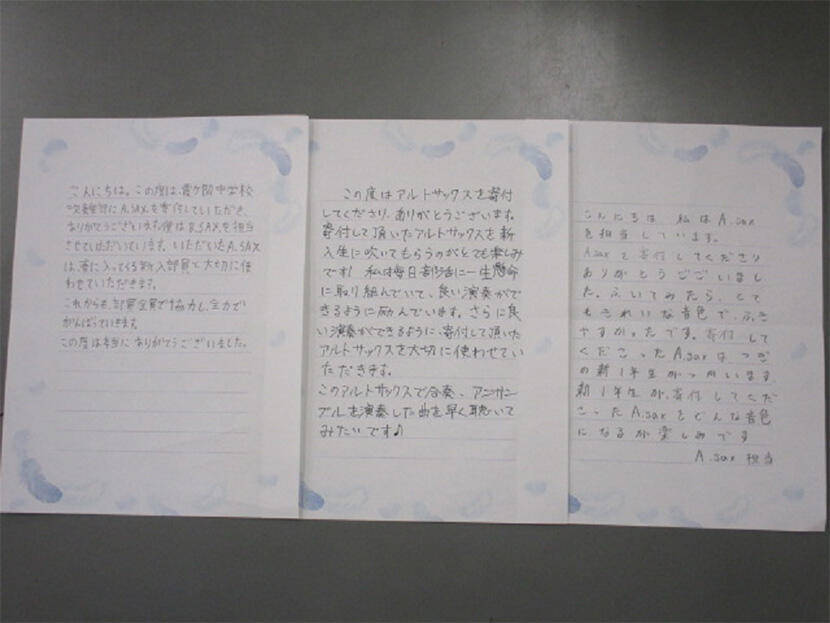 こんにちは。この度は、霞ケ関中学校
吹奏楽部にA.SAXを寄付していただき、
ありがとうございます。僕はB.SAXを担当
させていただいています。いただいたA.SAX
は、春に入ってくる新入部員と大切に使
わせていただきます。
これからも、部員全員で協力し、全力で
がんばっていきます。
この度は本当にありがとうございました。
この度はアルトサックスを寄付
してくださり、ありがとうございます。
寄付して頂いたアルトサックスを新
入生に吹いてもらうのがとても楽しみ
です! 私は毎日部活に一生懸命
に取り組んでいて、良い演奏がで
きるように励んでいます。さらに良
い演奏ができるように、寄付して頂いた
アルトサックスを大切に使わせてい
ただきます。
このアルトサックスで合奏、アンサン
ブルを演奏した曲を早く聴いて
みたいです♪
こんにちは 私はA.sax
を担当しています。
A.saxを寄付してくださり
ありがとうございまし
た。ふいてみたら、とて
もきれいな音色で、ふき
やすかったです。寄付して
くださったA.saxはつぎ
の新1年生がつかいます
新1年生が、寄付してくだ
さったA.saxをどんな音色
になるか楽しみです
A.sax 担当